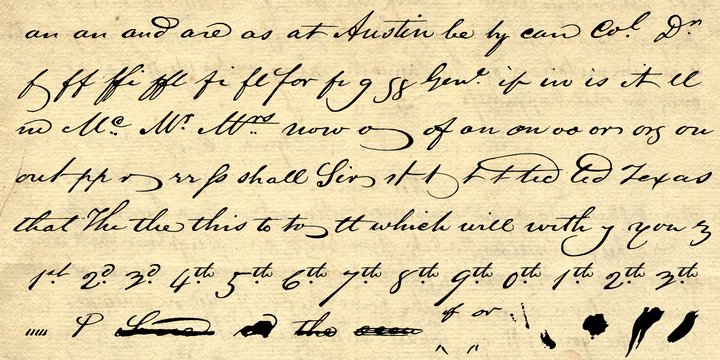 an an and are as at Austin be by can Col. Dr.
f ff ffi ffl fi fl for fr g gg Genl. if in is it ll
m Mc. Mr. Mrs. now o of on on oo or org ou
out pp r rr ss shall Sir st t t t ted ted Texas
that The the this to to tt which will with y you z
1st 2d. 3d. 4th 5th 6th 7th 8th 9th 0th 1th 2th 3th
,,,,, P the of or